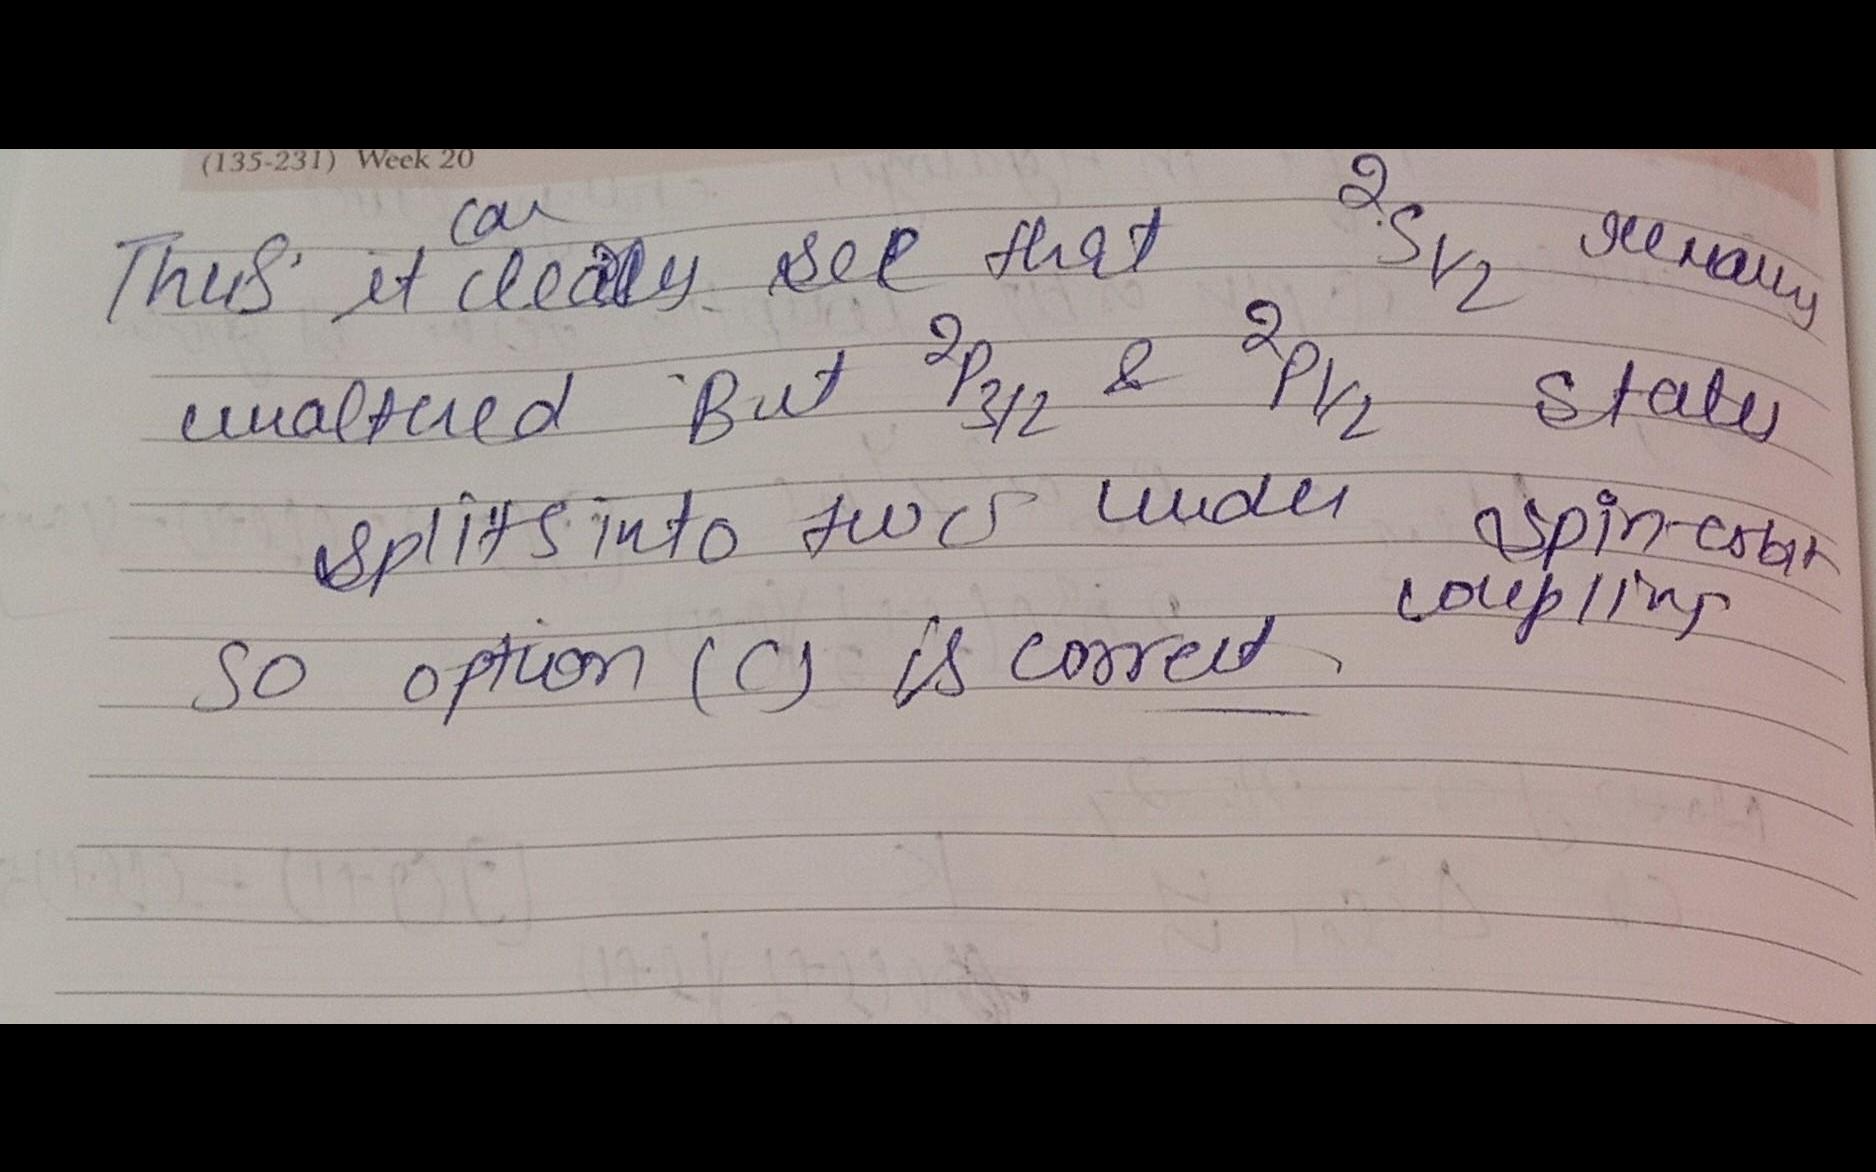 (135-231) Week 20
can
Thus it clearly see that ²S1/2 remains
unaltered But ²P3/2 & ²P1/2 states
splits into two under spin-orbit
coupling
So option (C) is correct.